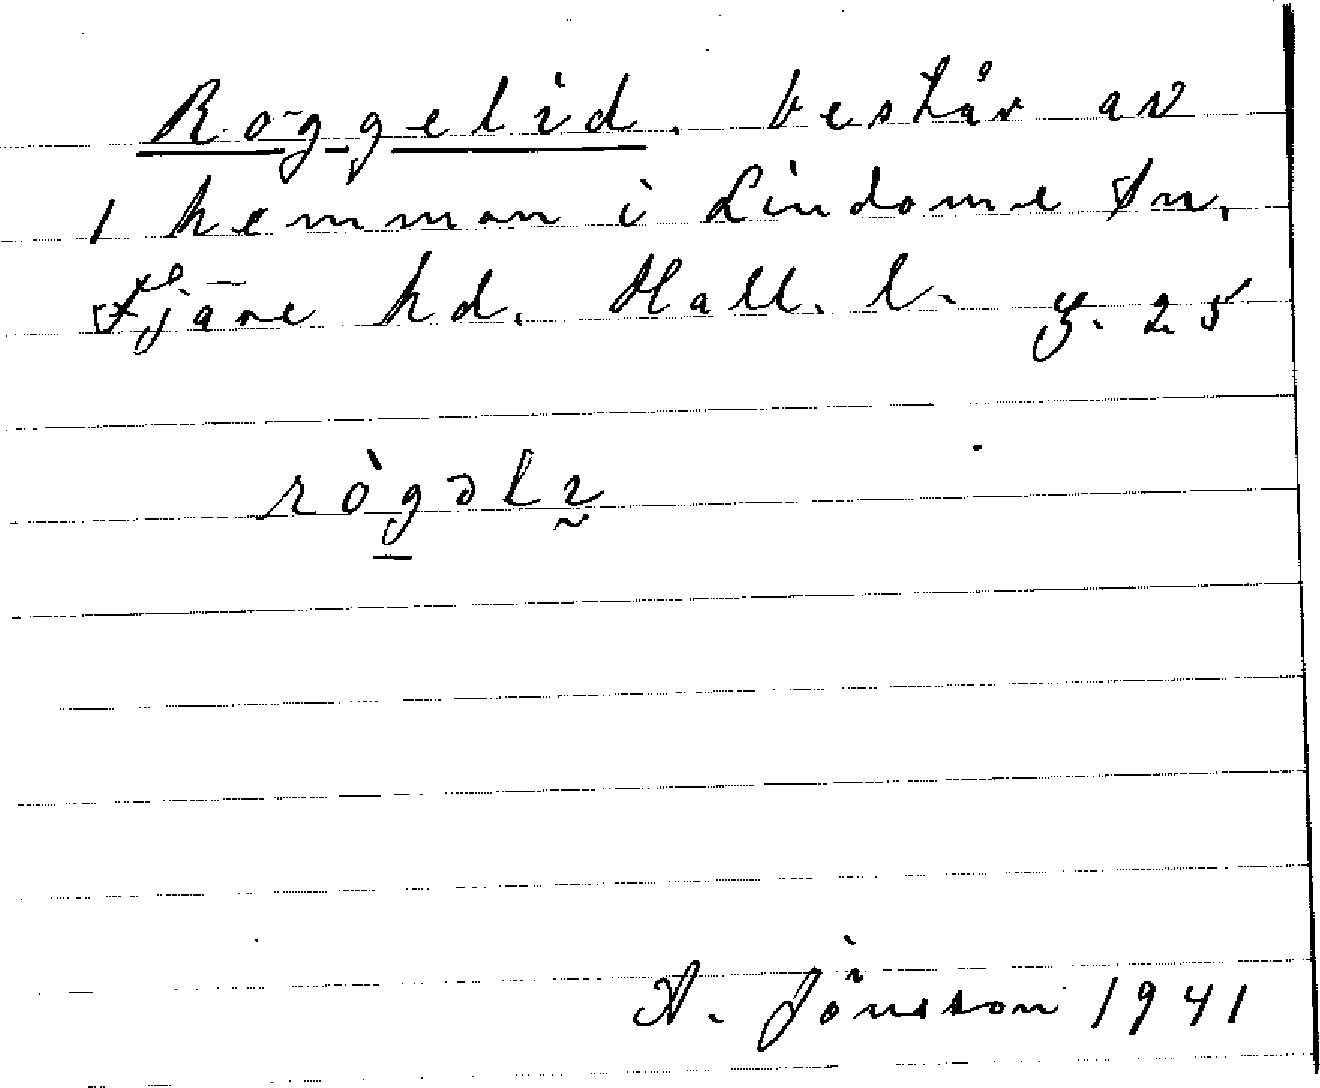 Röggelid. består av
1 hemman i Lindome sn.
Fjäre hd. Hall. l. g. 25
rògəlı
A. Jönsson 1941